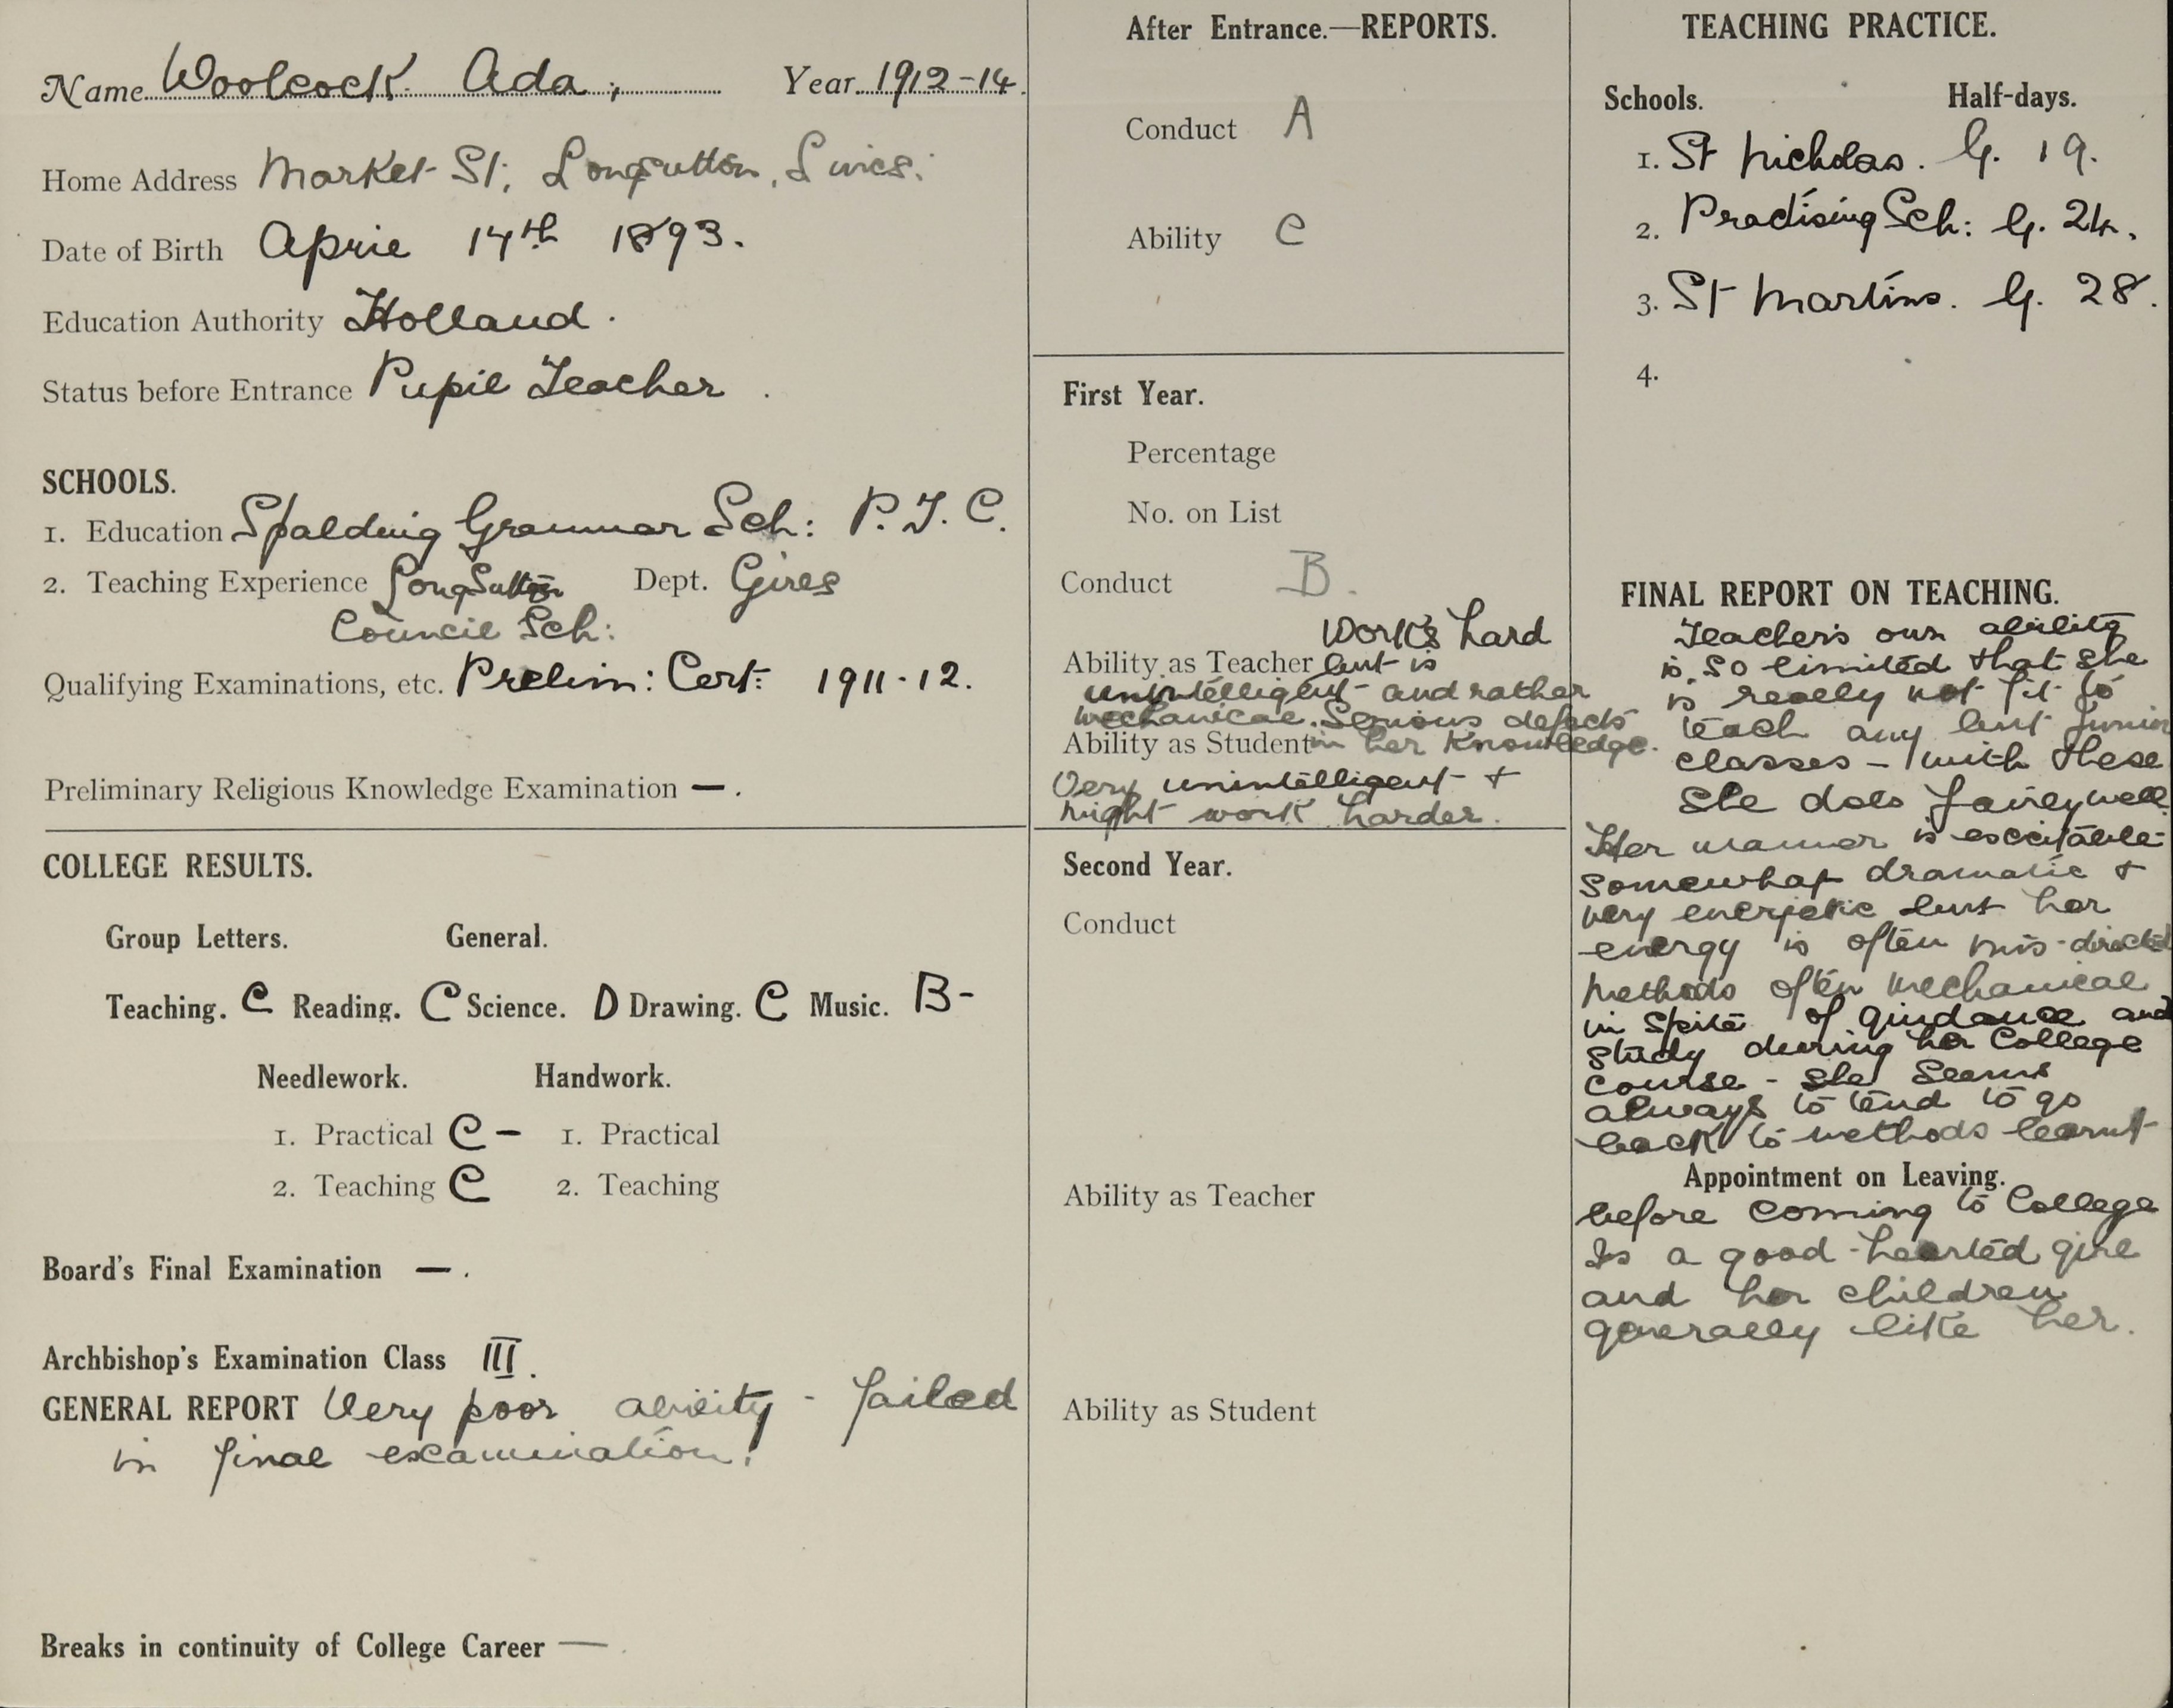 Name Woolcock Ada, Year 1912-14.
Home Address Market St, LongSutton, Lincs:
Date of Birth April 14th 1893.
Education Authority Holland.
Status before Entrance Pupil Teacher.
SCHOOLS.
1. Education Spalding Grammar Sch: P.T.C.
2. Teaching Experience LongSutton Dept. Girls
Council Sch:
Qualifying Examinations, etc. Prelim: Cert: 1911-12.
Preliminary Religious Knowledge Examination —.
COLLEGE RESULTS.
Group Letters. General.
Teaching. C Reading. C Science. D Drawing. C Music. B-
Needlework. Handwork.
1. Practical C - 1. Practical
2. Teaching C 2. Teaching
Board's Final Examination —.
Archbishop's Examination Class III.
GENERAL REPORT Very poor ability - failed
in final examination.
Breaks in continuity of College Career —
After Entrance.—REPORTS.
Conduct A
Ability C
First Year.
Percentage
No. on List
Conduct B.
Works hard
Ability as Teacher but is
unintelligent and rather
mechanical. Serious defects
Ability as Student in her knowledge.
Very unintelligent +
might work harder.
Second Year.
Conduct
Ability as Teacher
Ability as Student
TEACHING PRACTICE.
Schools. Half-days.
1. St Nicholas. G. 19.
2. Practising Sch: G. 24.
3. St Martins. G. 28.
4.
FINAL REPORT ON TEACHING.
Teacher's own ability
is so limited that she
is really not fit to
teach any but junior
classes - with these
she does fairly well.
Her manner is excitable
somewhat dramatic +
very energetic but her
energy is often mis-directed
Methods often mechanical
in spite of guidance and
study during her College
course - she seems
always to tend to go
back to methods learnt
Appointment on Leaving.
before coming to College
Is a good-hearted girl
and her children
generally like her.